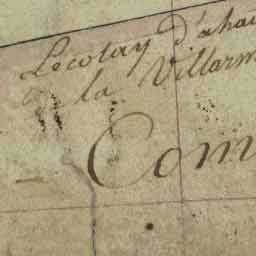 Lecolay d'aha
la Villarm
Com